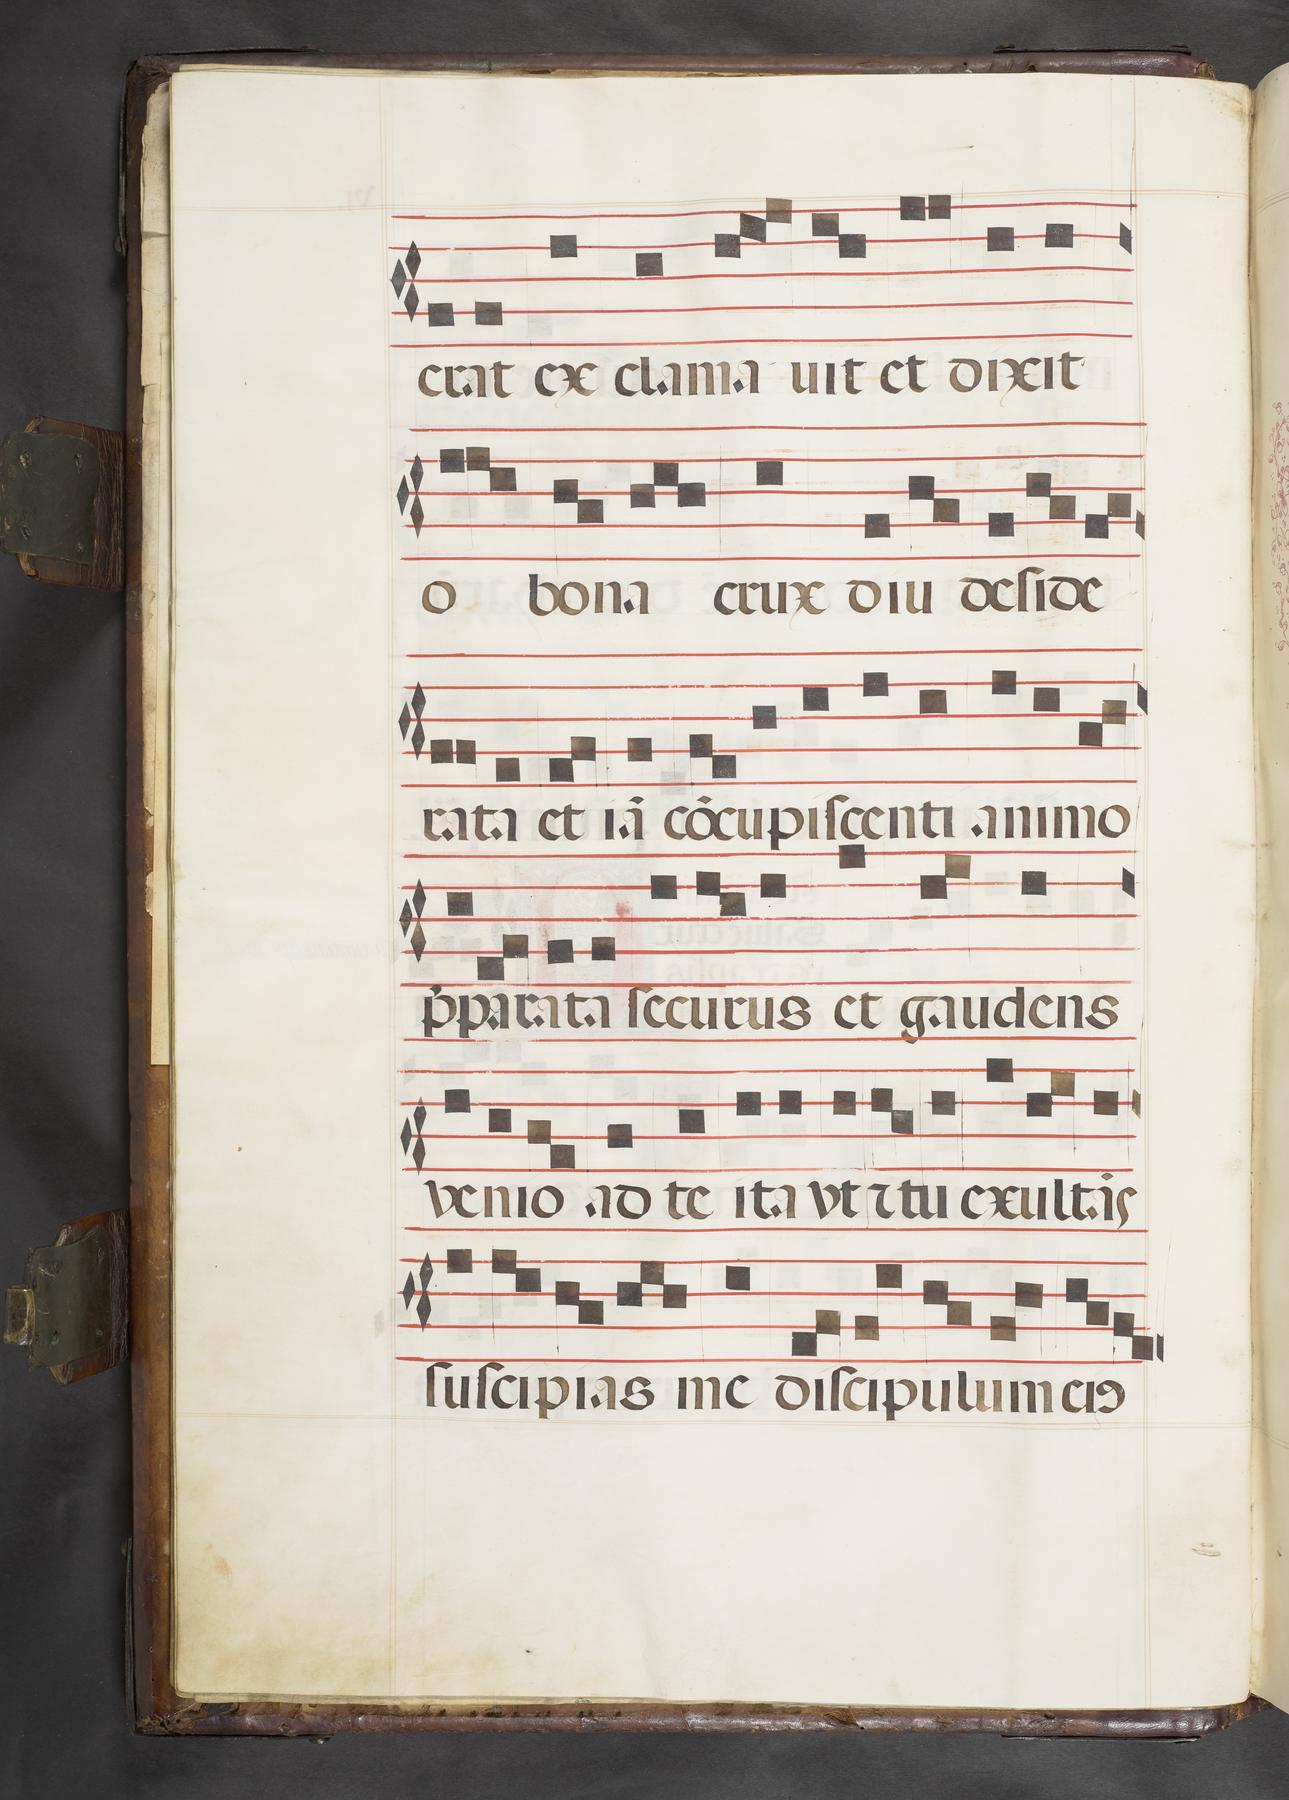 erat ex clama uit et dixit
o bona crux diu deside
rata et iā cōcupiſcenti animo
p̄parata ſecurus et gaudens
venio ad te ita vt ⁊ tu exultās
ſuſcipias me diſcipulum eiꝰ